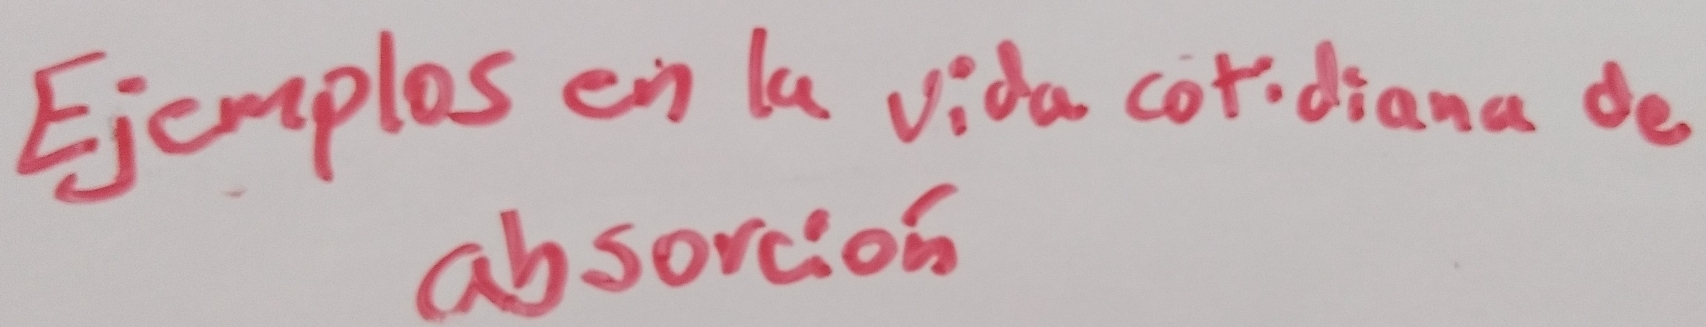 Ejemplos en la vida cotidiana de
absorción